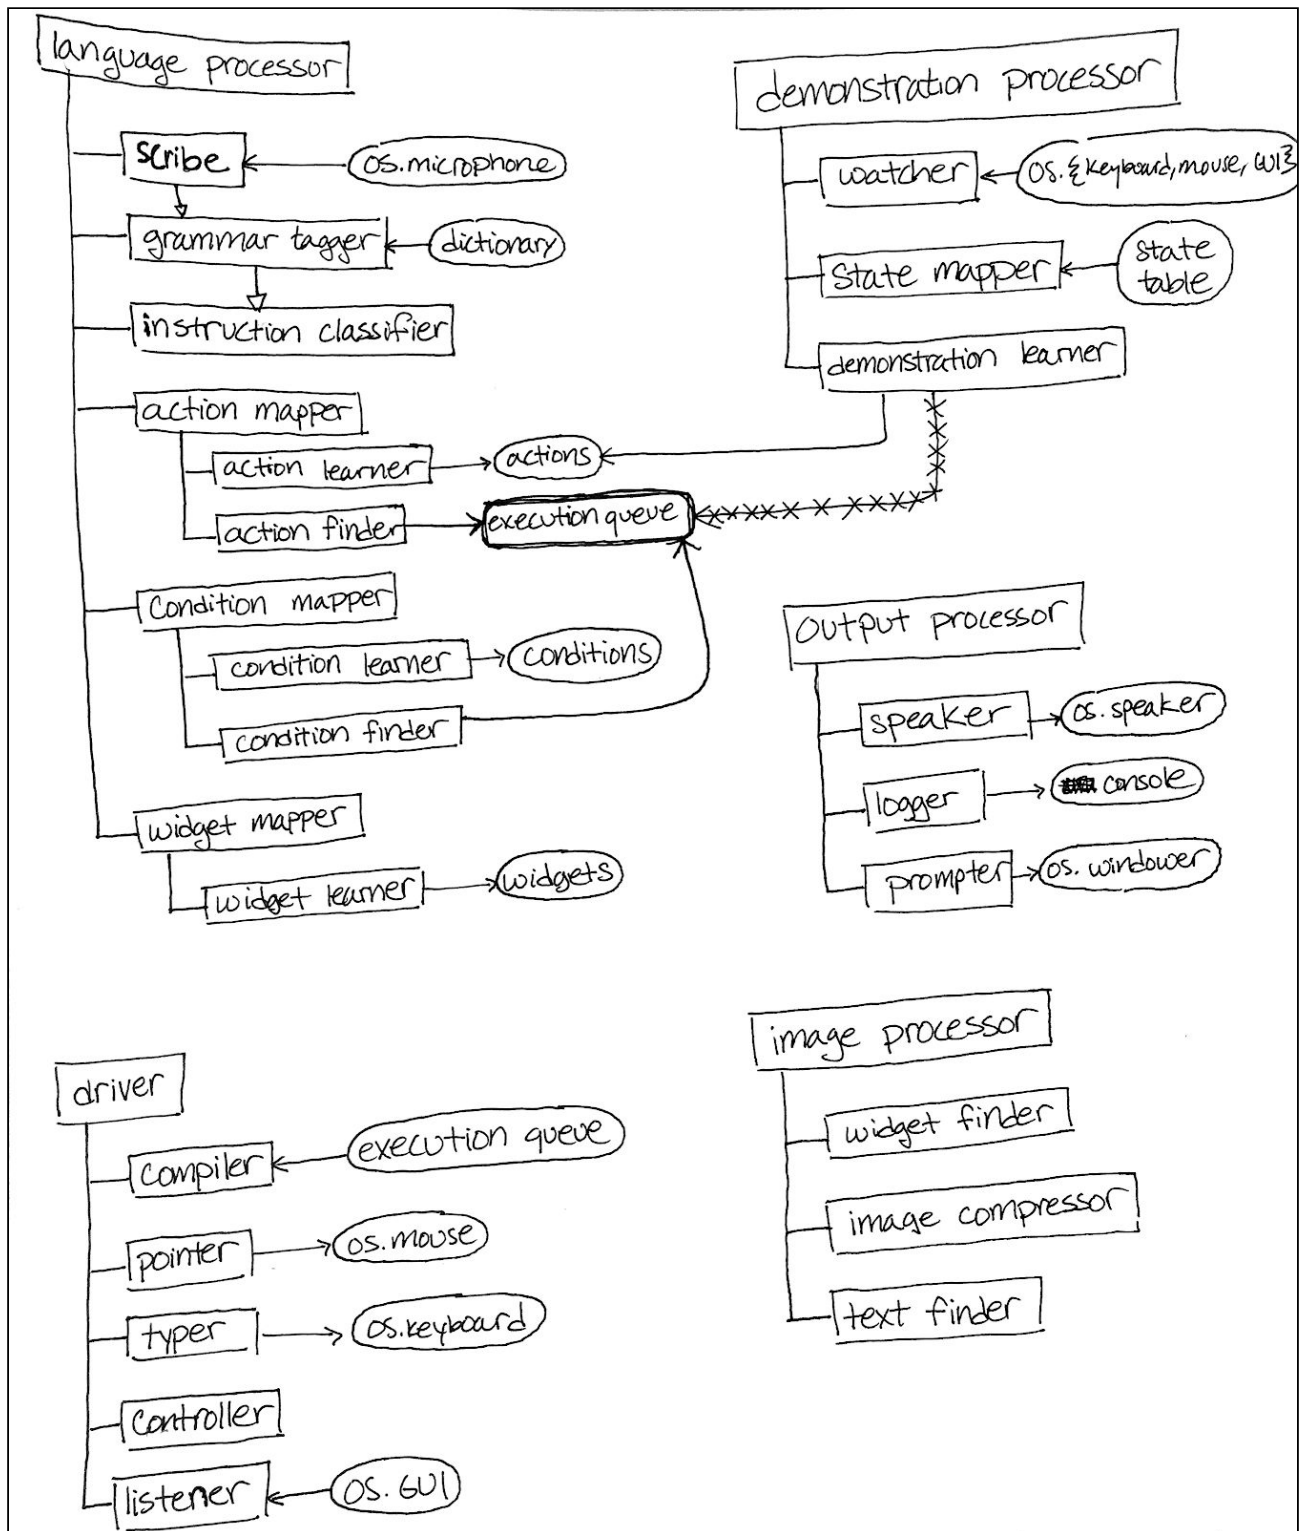 language processor
scribe
os.microphone
grammar tagger
dictionary
instruction classifier
action mapper
action learner
actions
action finder
execution queue
condition mapper
condition learner
conditions
condition finder
widget mapper
widget learner
widgets
demonstration processor
watcher
os.{keyboard, mouse, GUI}
state mapper
state
table
demonstration learner
output processor
speaker
os.speaker
logger
console
prompter
os.windower
driver
compiler
execution queue
pointer
os.mouse
typer
os.keyboard
controller
listener
OS.GUI
image processor
widget finder
image compressor
text finder